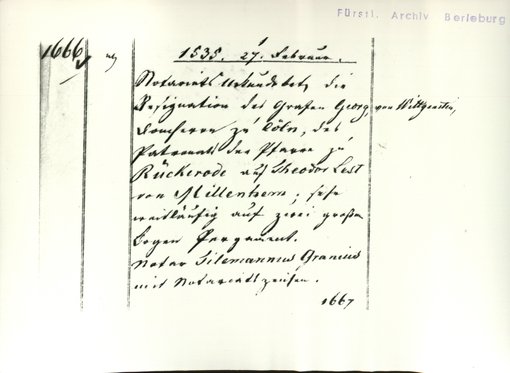 Fürstl. Archiv Berleburg
1666
1535. 27. Februar.
Notariats Urkunde betr. die
Resignation des Grafen Georg, von Wittgenstein,
Domherrn zu Cöln, des
Patronats der Pfarre zu
Rückerode auf Theodor Lest
von Millenheim; sehr
weitläufig auf zwei großen
Bogen Pergament.
Notar Tilemannus Granius
mit Notariatszeichen.
1667